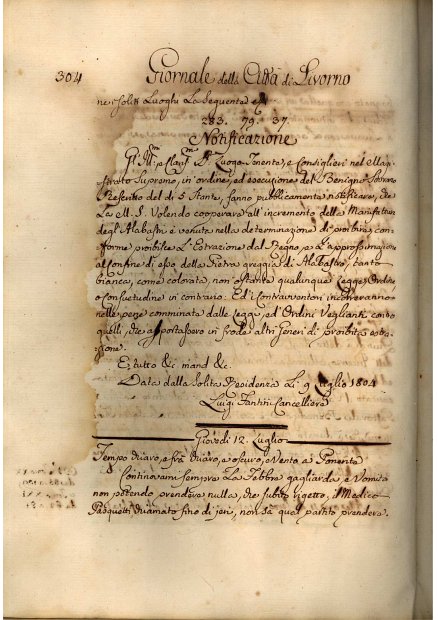 304 Giornale della Città di Livorno
ne soliti Luoghi La Seguente
283. 79. 37.
Notificazione
Gl' Ill.mi e Clar.mi SS.ri Luogo Tenente, e Consiglieri nel Magi-
strato Supremo, in ordine, ed esecuzione del Benigno Sovrano
Rescritto del dì 5 Stante, fanno pubblicamente notificare, che
La M. S. Volendo cooperare all'incremento delle Manifatture
degl'Alabastri è venuta nella determinazione di proibire, con-
forme proibisce L'Estrazione dal Regno, e L'approssimazione
al Confine di esso della Pietra greggia di Alabastro, tanto
bianca, come colorata, non ostante qualunque Legge, Ordine
o Consuetudine in contrario. Ed i Contravventori incorreranno
nelle pene comminate dalle Legge, ed Ordini Veglianti contro
quelli, che asportassero in frode altri Generi di proibita estra-
zione.
E tutto &c. mand &c.
Data dalla Solita Residenza Li 9 Luglio 1804
Luigi Fantini Cancelliere
Giovedì 12. Luglio
Tempo chiaro, e fra chiaro, e oscuro, e Vento a Ponente
Continovami sempre La Febbre gagliarda, e Vomito
non potendo prendere nulla, che subito rigetto, il Medico
Pasquetti chiamato fino di jeri, non sà qual partito prendere.